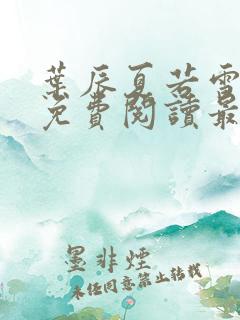 葉辰夏若雪
免費閱讀最
墨非煙
未任同意禁止转载